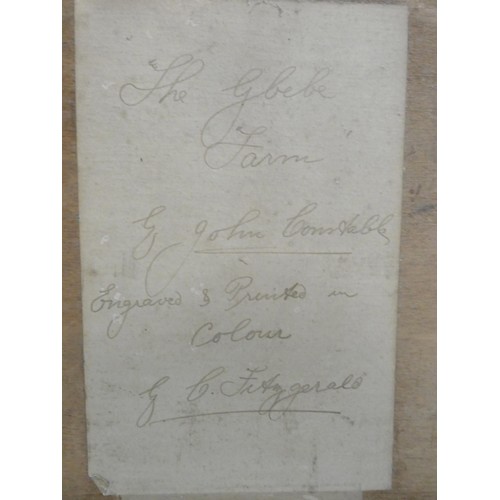 "The Glebe
Farm"
By John Constable
Engraved & Printed in
Colour
By C. Fitzgerald